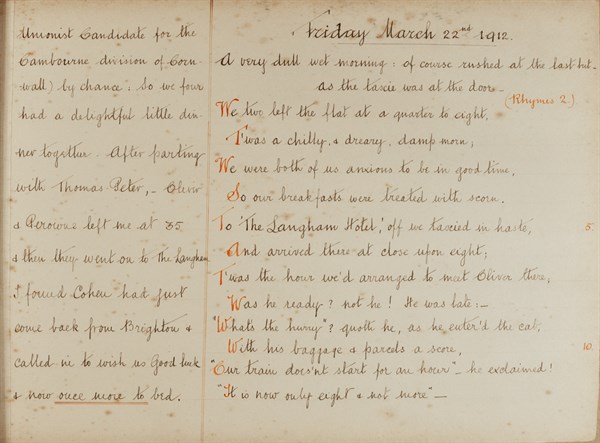 Unionist Candidate for the
Cambourne division of Corn-
wall) by chance: So we four
had a delightful little din-
ner together. After parting
with Thomas-Peter, – Oliver
& Perowne left me at 35
& then they went on to The Langham
I found Cohen had just
come back from Brighton &
called in to wish us Good luck
& now once more to bed.
Friday March 22nd 1912.
A very dull wet morning: of course rushed at the last but-
as the taxie was at the door –
(Rhymes 2.)
We two left the flat at a quarter to eight,
T'was a chilly, & dreary, damp morn;
We were both of us anxious to be in good time,
So our breakfasts were treated with scorn.
To 'The Langham Hotel,' off we taxied in haste, 5.
And arrived there at close upon eight;
T'was the hour we'd arranged to meet Oliver there,
Was he ready? not he! He was late: –
"Whats the hurry"? quoth he, as he enter'd the cab,
With his baggage & parcels a score, 10.
"Our train does'nt start for an hour" – he exclaimed!
"It is now only eight & not more" –